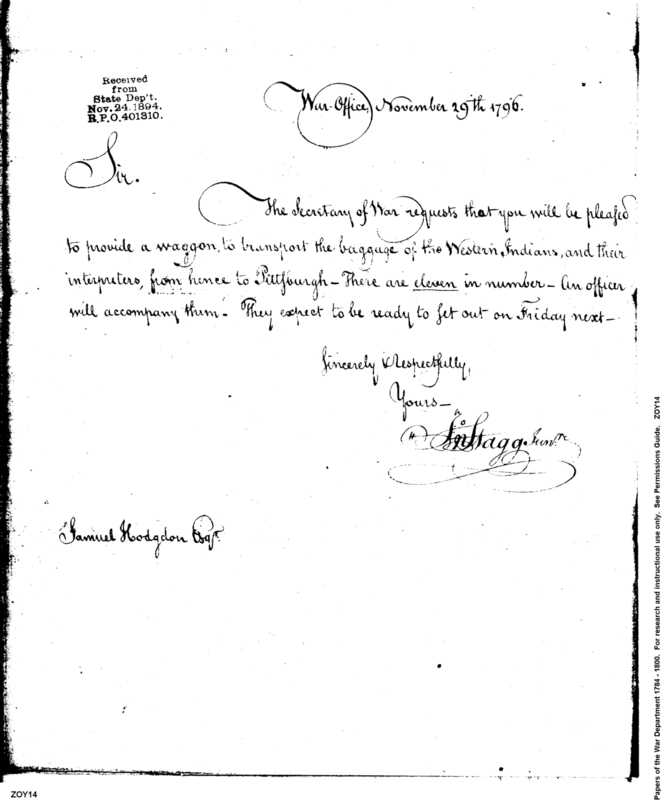 Received
from
State Dep't.
Nov. 24. 1894.
R.P.O. 401310.
War-Office, November 29th 1796.
Sir.
The Secretary of War requests that you will be pleased
to provide a waggon, to transport the baggage of the Western Indians, and their
interpreters, from hence to Pittsburgh - There are eleven in number - An officer
will accompany them - They expect to be ready to set out on Friday next -
Sincerely & Respectfully,
Yours -
Jno Stagg Junr.
Samuel Hodgdon Esqr.
Papers of the War Department 1784 - 1800. For research and instructional use only. See Permissions Guide. ZOY14
ZOY14